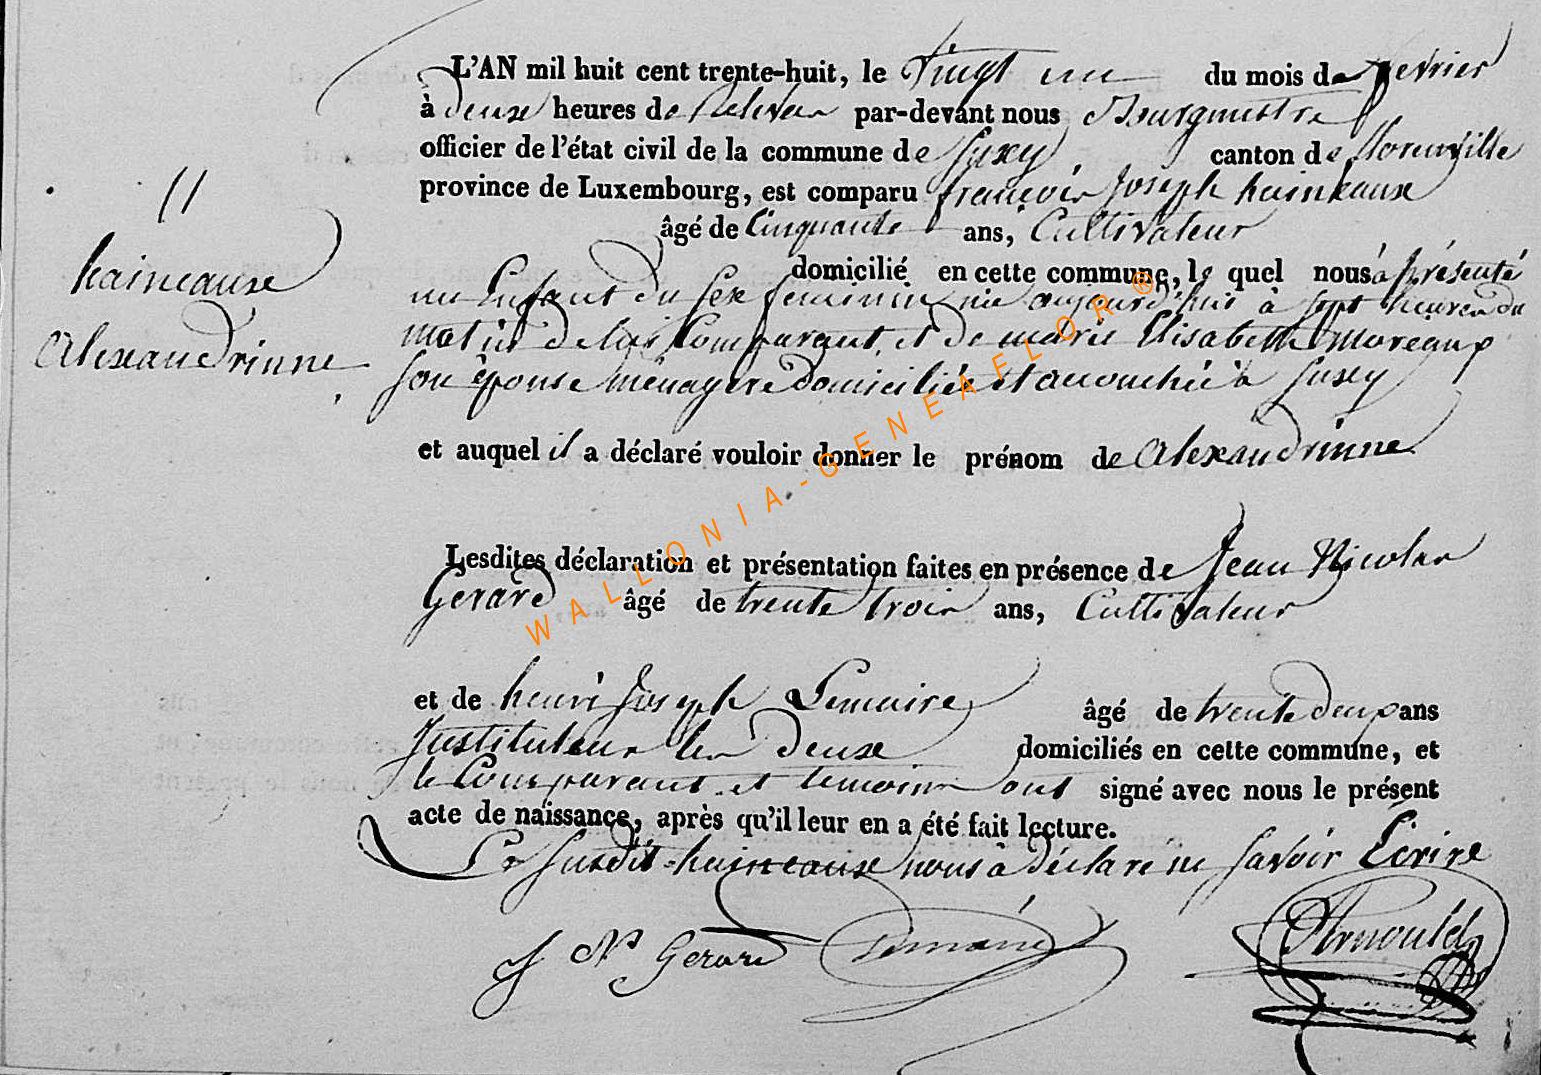 11
haineauxe
Alexandrinne
L'AN mil huit cent trente-huit, le Vingt un du mois de fevrier
à deuxe heures de Relevée par-devant nous Bourgmestre
officier de l'état civil de la commune de Suxcy canton de florenville
province de Luxembourg, est comparu françois Joseph haineauxe
âgé de Cinquante ans, Cultivateur
domicilié en cette commune, le quel nous à présenté
un Enfant du sexe feminin née aujourd'huis à sept heures du
matin de lui Comparant, et de marie Elisabethe moreaux
son épouse ménagere domiciliée et accouchée à Suxcy
et auquel il a déclaré vouloir donner le prénom de Alexandrinne
Lesdites déclaration et présentation faites en présence de Jean Nicolas
Gerard âgé de trente trois ans, Cultivateur
et de henri Joseph Lemaire âgé de trente deux ans
Instituteur les deuxe domiciliés en cette commune, et
le Comparant et temoins ont signé avec nous le présent
acte de naissance, après qu'il leur en a été fait lecture.
Le susdit haineauxe nous à déclare ne savoir Ecrire
J N Gerard Lemaire Arnould
WALLONIA-GENEAFLOR®